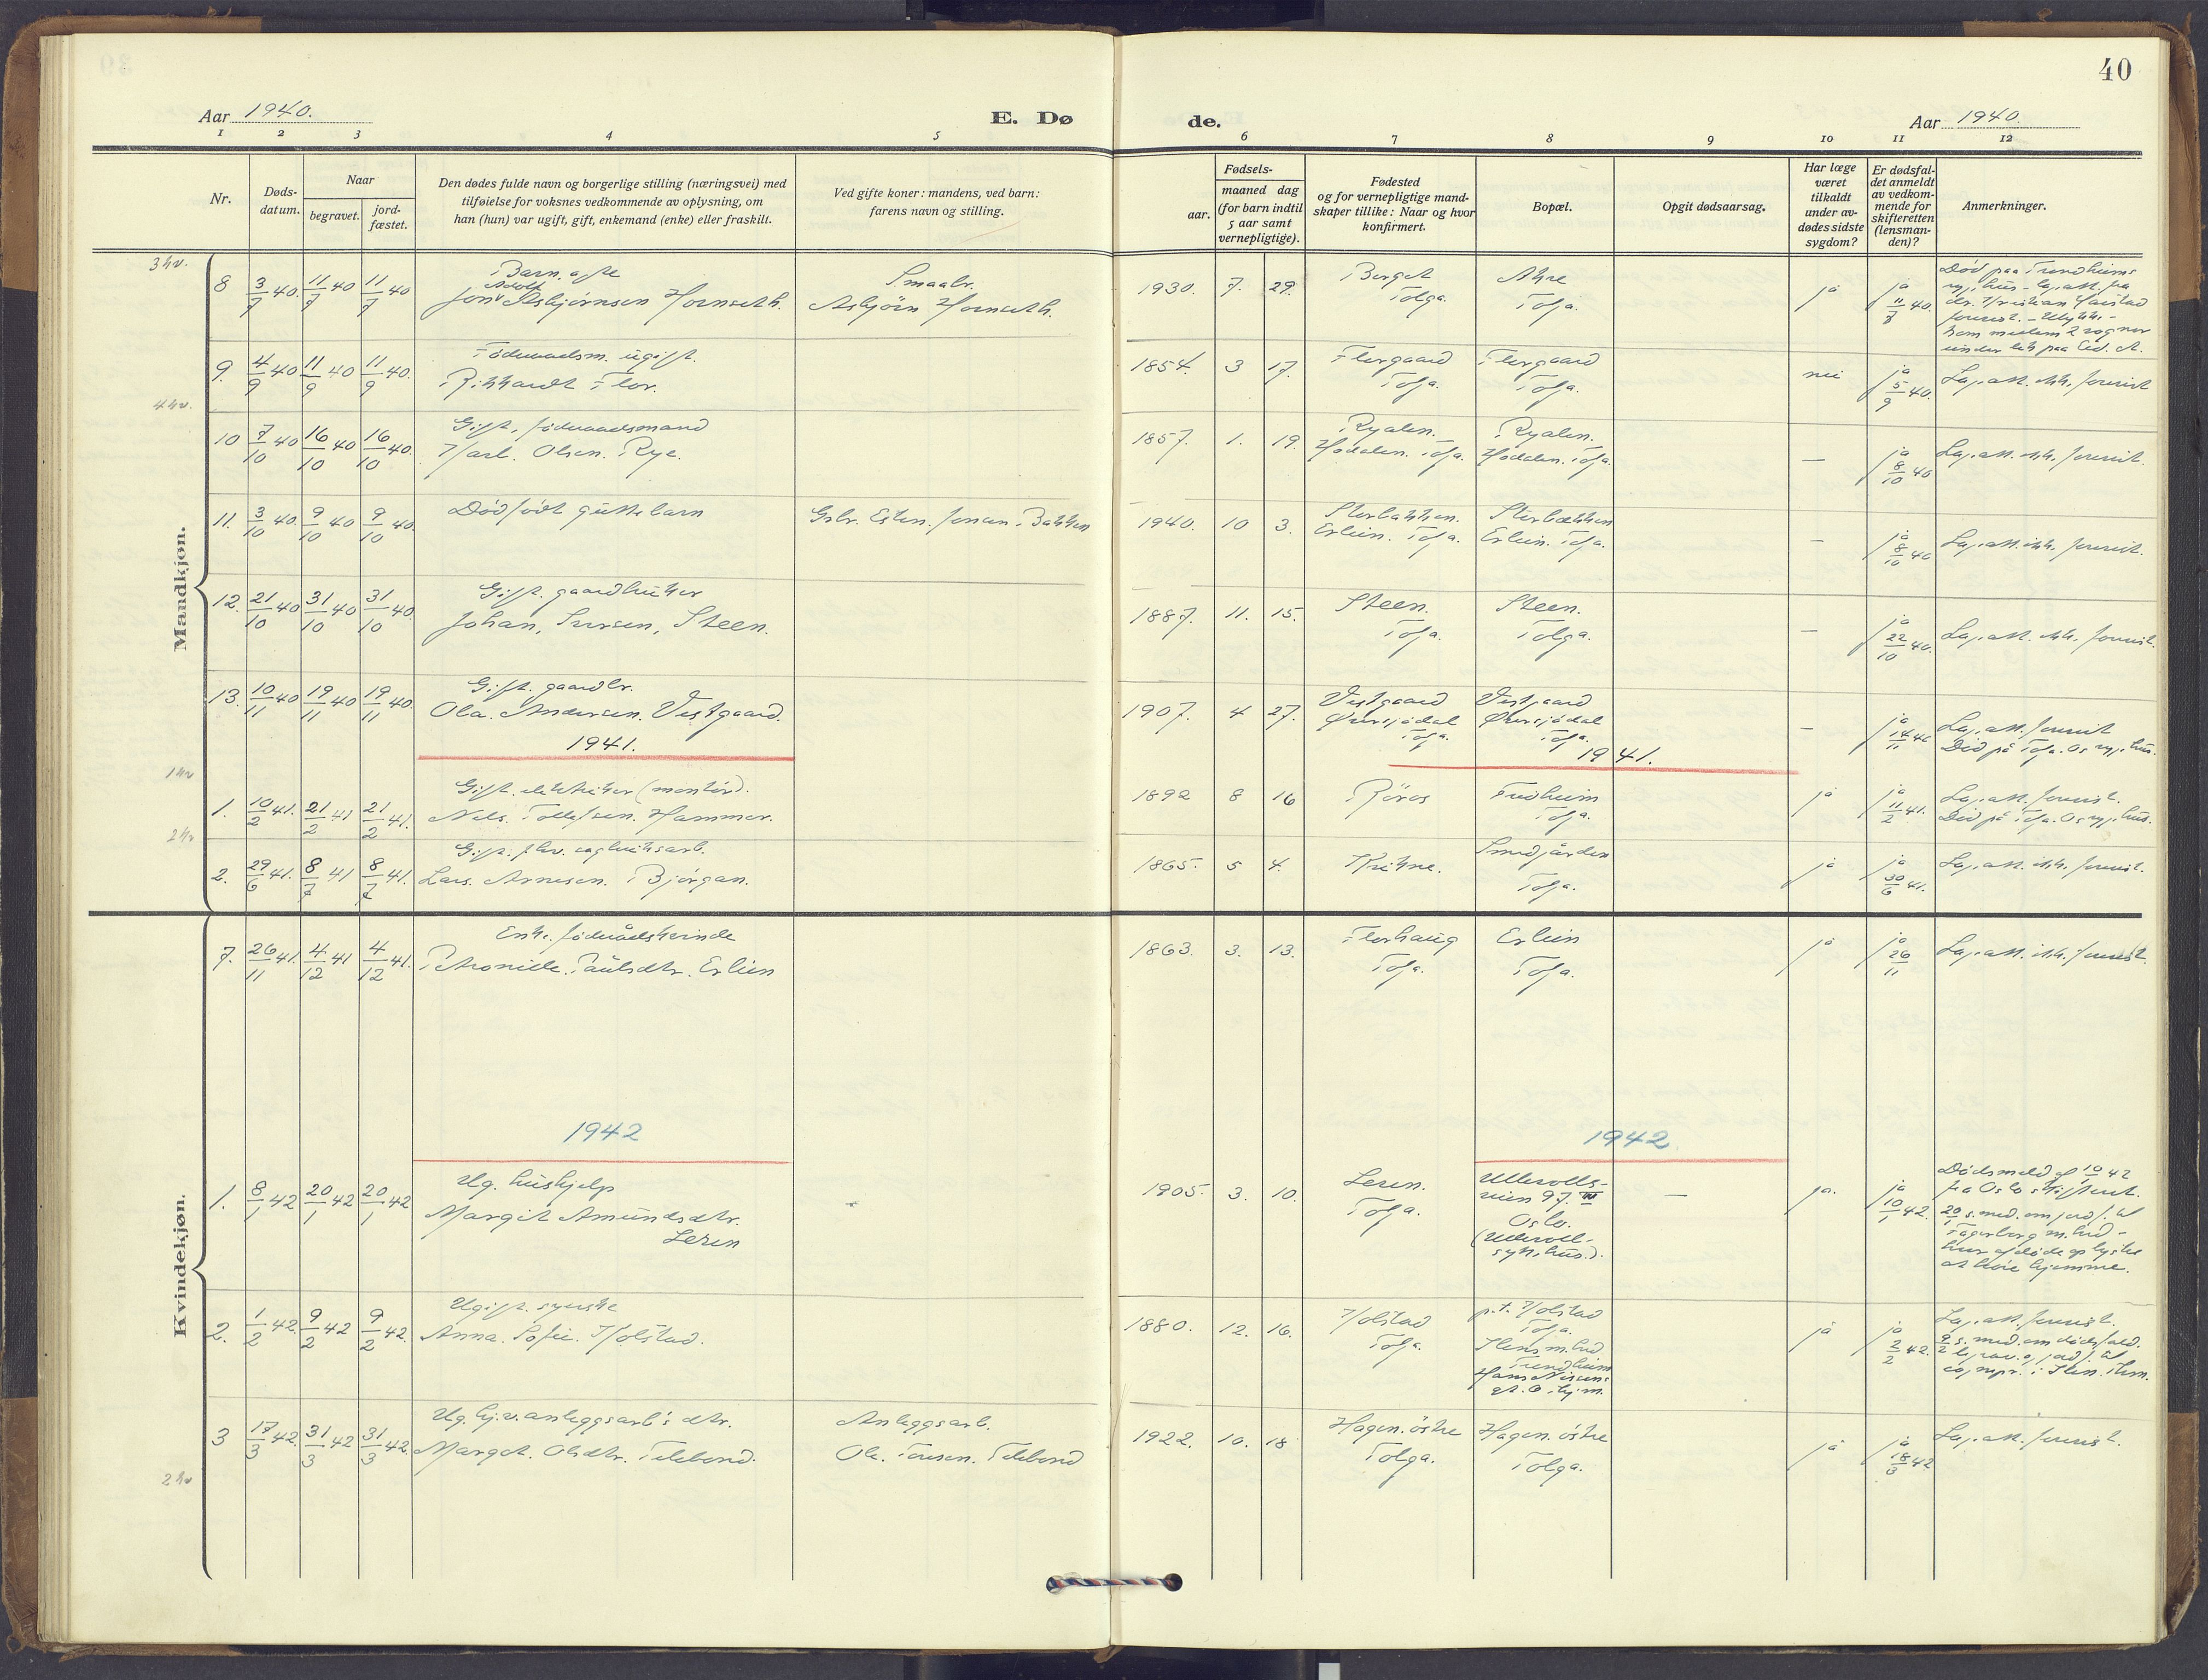 40
Aar 1940.
E. Dø de.
Aar 1940.
1 2 3 4 5 6 7 8 9 10 11 12
Nr.
Døds-
datum.
Naar
begravet.
jord-
fæstet.
Den dødes fulde navn og borgerlige stilling (næringsvei) med
tilføielse for voksnes vedkommende av oplysning, om
han (hun) var ugift, gift, enkemand (enke) eller fraskilt.
Ved gifte koner: mandens, ved barn:
farens navn og stilling.
Fødsels-
aar.
maaned dag
(for barn indtil
5 aar samt
vernepligtige).
Fødested
og for vernepligtige mand-
skaper tillike: Naar og hvor
konfirmert.
Bopæl.
Opgit dødsaarsag.
Har læge
været
tilkaldt
under av-
dødes sidste
sygdom?
Er dødsfal-
det anmeldt
av vedkom-
mende for
skifteretten
(lensman-
den)?
Anmerkninger.
Mandkjøn.
8 3/9 40. 11/9 40 11/9 40
Barn. af
Adolf
Jon Asbjørnsen Hornseth.
Smaabr.
Asbjörn Hornseth.
1930. 7. 29.
Berget
Tolga.
Ahre
Tolga.
ja
ja
Död paa Trondheims
9. 4/9 40 11/9 40 11/9 40.
Föderaadsm. ugift.
Rikhardt Flor.
1854. 3 17.
Florgaard
Tolga.
Florgaard
Tolga.
nei
ja 5/9 40.
Lag. att. ikk. forevist
10 7/10 40 16/10 40 16/10 40.
Gift, föderaadsmand
Karl. Olsen. Rye.
1857. 1. 19.
Ryalen.
Hodalen. Tolga.
Ryalen.
Hodalen. Tolga.
—
ja 8/10 40
Lag. att. ikk. forevist.
11. 3/10 40. 9/10 40 9/10 40
Dödfödt guttebarn
Gbr. Esten. Jonsen. Bakken
1940. 10 3.
Storbakken.
Erlien. Tolga.
Storbakken
Erlien. Tolga.
—
ja 8/10 40
Lag. att. ikk. forevist.
12. 21/10 40 31/10 40 31/10 40.
Gift. gaardbruker
Johan, Sivrsen, Steen.
1887. 11. 15.
Steen.
Tolga.
Steen.
Tolga.
—
ja 22/10 40.
Lag. att. ikk. forevist.
13. 10/11 40 19/11 40 19/11 40.
Gift. gaardbr.
Ola. Andersen. Vestgaard.
1907. 4 27.
Vestgaard
Øversjødal
Tolga.
Vestgaard
Øversjødal
Tolga.
—
ja 14/11 40
Lag. att. forevist
Död på Tolga. Os syk.hus.
1941.
1941.
1. 10/2 41. 21/2 41 21/2 41.
Gift. elektriker (montör).
Nils. Tollefsen. Hammer.
1892 8 16
Röros
Fredheim
Tolga.
ja
ja 11/2 41.
Lag. att. forevist.
Död på Tolga. Os syk.hus.
2. 29/6 41. 8/7 41 8/7 41.
Lars. Arnesen. Bjørgan.
1865. 5 4.
Kvikne.
Smedjården
Tolga.
ja
ja 30/6 41.
Lag. att. ikk. forevist.
Kvindekjøn.
7. 26/11 41. 4/12 41 4/12 41.
Enke. föderådskvinde
Petronelle. Paulsdtr. Erlien
1863. 3. 13.
Florhaug
Tolga.
Erlien
Tolga.
ja
ja 26/11
Lag. att. ikk. forevist.
1942
1942
1. 8/1 42 20/1 42 20/1 42
Ug. hushjelp
Margit Amundsdtr.
Leren
1905. 3. 10.
Leren.
Tolga.
Ullevolls-
veien 97. IV
Oslo.
(Ullevoll-
sykehus.).
—
ja.
ja 10/1 42.
Dödsmeld. af 10/1 42
fra Oslo skifteret.
20/1 s. med. om jordf. til
Fagerborg m.
at höre hjemme.
2. 1/2 42. 9/2 42 9/2 42.
Ugift. syerske
Anna. Sofie. Holstad.
1880. 12. 16.
Holstad
Tolga.
p.t. Holstad
Tolga.
Trondheim
ja
ja 2/2 42.
Lag. att. forevist.
s. med. om dödsfald.
3 17/3 42. 31/3 42 31/3 42.
Ug. hj.v. anleggsarb's dtr.
Margot. Olsdtr. Telebond.
Anleggsarb.
Ole. Toresen. Telebond
1922. 10. 18
Hagen. östre
Tolga.
Hagen. östre
Tolga.
ja
ja 18/3 42
Lag. att. forevist.